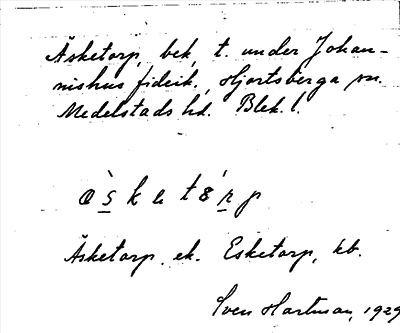 Äsketorp, bek. t. under Johan-
nishus fideik., Hjortsberga sn.
Medelstads hd. Blek. l.
Äsketorp, ek. Esketorp, kb.
Sven Hartman, 1929